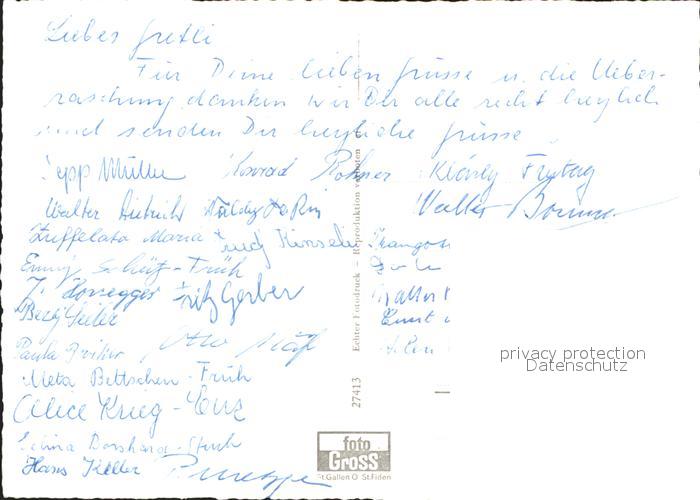 Liebes Gretli
Für Deine lieben Grüsse u. die Ueber-
raschung danken wir Dir alle recht herzlich
und senden Dir herzliche Grüsse
Sepp Müller Konrad Rohner Klärly Freytag
Walter Dietrich Walter
Zuffelato Maria Trudj Kinseli
Emmy Schütz-Früh
J. Honegger Fritz Gerber Walter
Bethj Seiler Ernst
Paula Otto
Meta Bettschen-Früh
Alice Krieg-Enz
Hans Keller
Echter Fotodruck - Reproduktion verboten
27413
foto
GROSS
St. Gallen O St. Fiden
privacy protection
Datenschutz